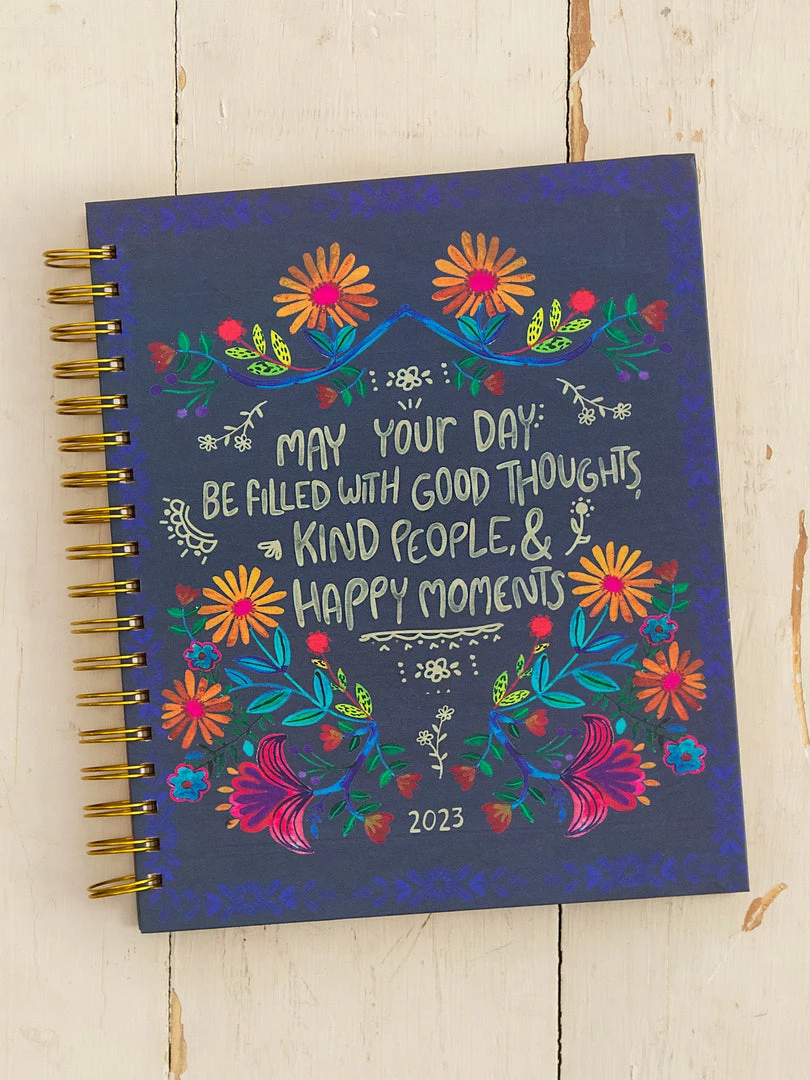 MAY YOUR DAY
BE FILLED WITH GOOD THOUGHTS,
KIND PEOPLE, &
HAPPY MOMENTS
2023